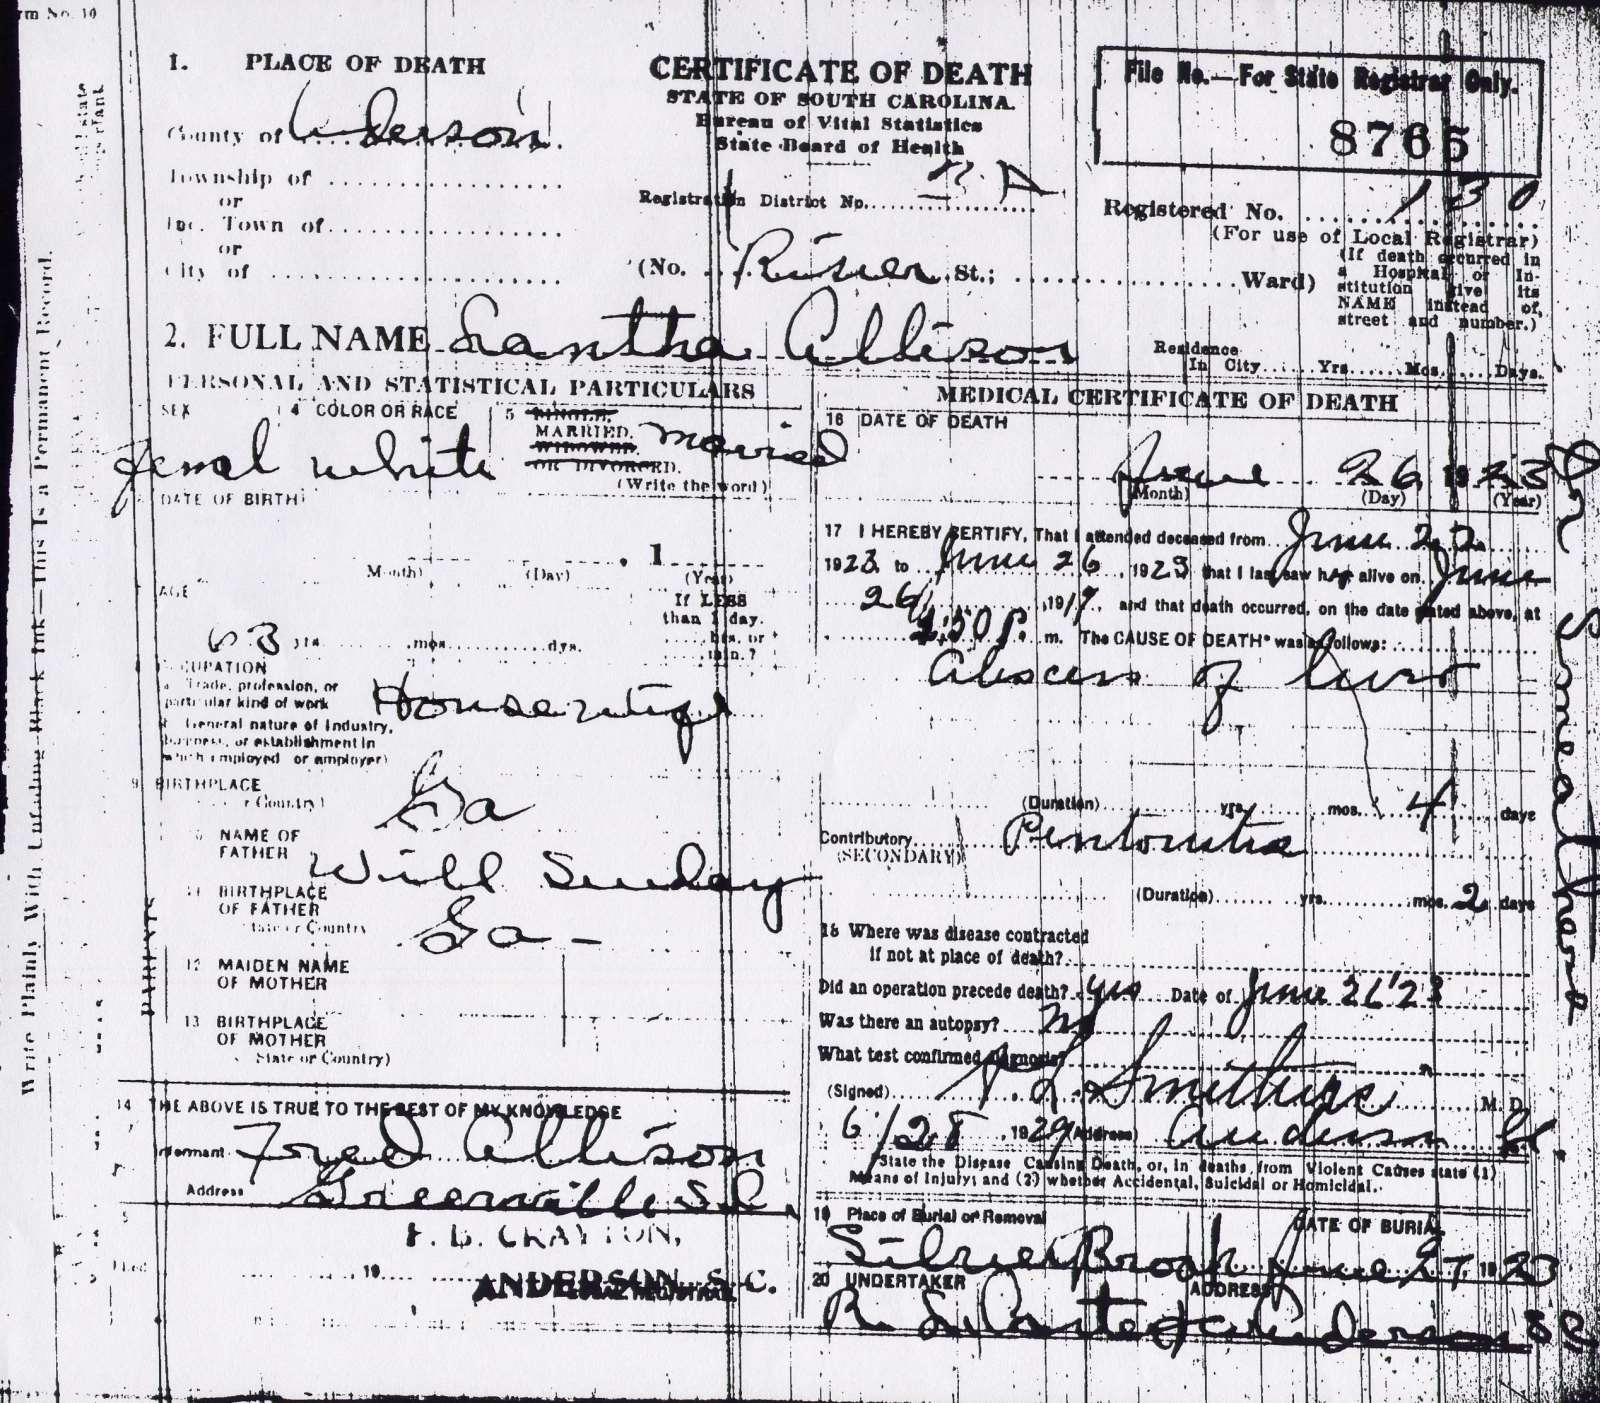 1. PLACE OF DEATH
County of Anderson
Township of
or
Inc. Town of
or
City of
CERTIFICATE OF DEATH
STATE OF SOUTH CAROLINA.
Bureau of Vital Statistics
State Board of Health
Registration District No.
(No. River St.; Ward)
File No.—For State Registrar Only.
8765
Registered No. 130
(For use of Local Registrar)
(If death occurred in
a Hospital or In-
stitution give its
NAME instead of
street and number.)
2. FULL NAME Santha Allison
Residence
In City Yrs. Mos. Days.
PERSONAL AND STATISTICAL PARTICULARS
SEX
Femal
4 COLOR OR RACE
white
5 SINGLE,
MARRIED,
WIDOWED,
OR DIVORCED.
(Write the word)
Married
DATE OF BIRTH
1
(Month) (Day) (Year)
AGE
63 yrs. mos. dys.
If LESS
than 1 day.
hrs. or
min.?
OCCUPATION
Trade, profession, or
particular kind of work
Housewife
General nature of Industry,
business, or establishment in
which employed or employer)
9 BIRTHPLACE
or Country)
Ga
NAME OF
FATHER
Will
11 BIRTHPLACE
OF FATHER
State or Country
Ga -
12 MAIDEN NAME
OF MOTHER
13 BIRTHPLACE
OF MOTHER
State or Country)
PARENTS
14 THE ABOVE IS TRUE TO THE BEST OF MY KNOWLEDGE
Informant Fred Allison
Address Greenville S.C.
CRAYTON,
Filed 19
ANDERSON, S. C.
LOCAL REGISTRAR
MEDICAL CERTIFICATE OF DEATH
16 DATE OF DEATH
June 26 1923
(Month) (Day) (Year)
17 I HEREBY CERTIFY, That I attended deceased from June 22
1923, to June 26, 1923 that I last saw her alive on June
26, 191 and that death occurred, on the date stated above, at
:50 P. m. The CAUSE OF DEATH* was as follows:
Abscess of liver
(Duration) yrs. mos. 4 days
Contributory Peritonitis
(SECONDARY)
(Duration) yrs. mos. 2 days
18 Where was disease contracted
if not at place of death?
Did an operation precede death? yes Date of June 26 '23
Was there an autopsy? no
What test confirmed diagnosis?
(Signed) M. D.
6/28, 192 (Address) Anderson
State the Disease Causing Death, or, in deaths from Violent Causes state (1)
Means of Injury; and (2) whether Accidental, Suicidal or Homicidal.
19 Place of Burial or Removal DATE OF BURIAL
Silver Brook June 27 1923
20 UNDERTAKER ADDRESS
Anderson S C
Dr Smeathers
Write Plainly With Unfading Black Ink—This Is a Permanent Record.
Form No. 10